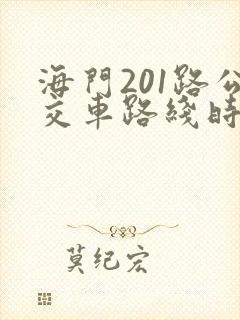 海門201路公
交車路綫時
莫纪宏